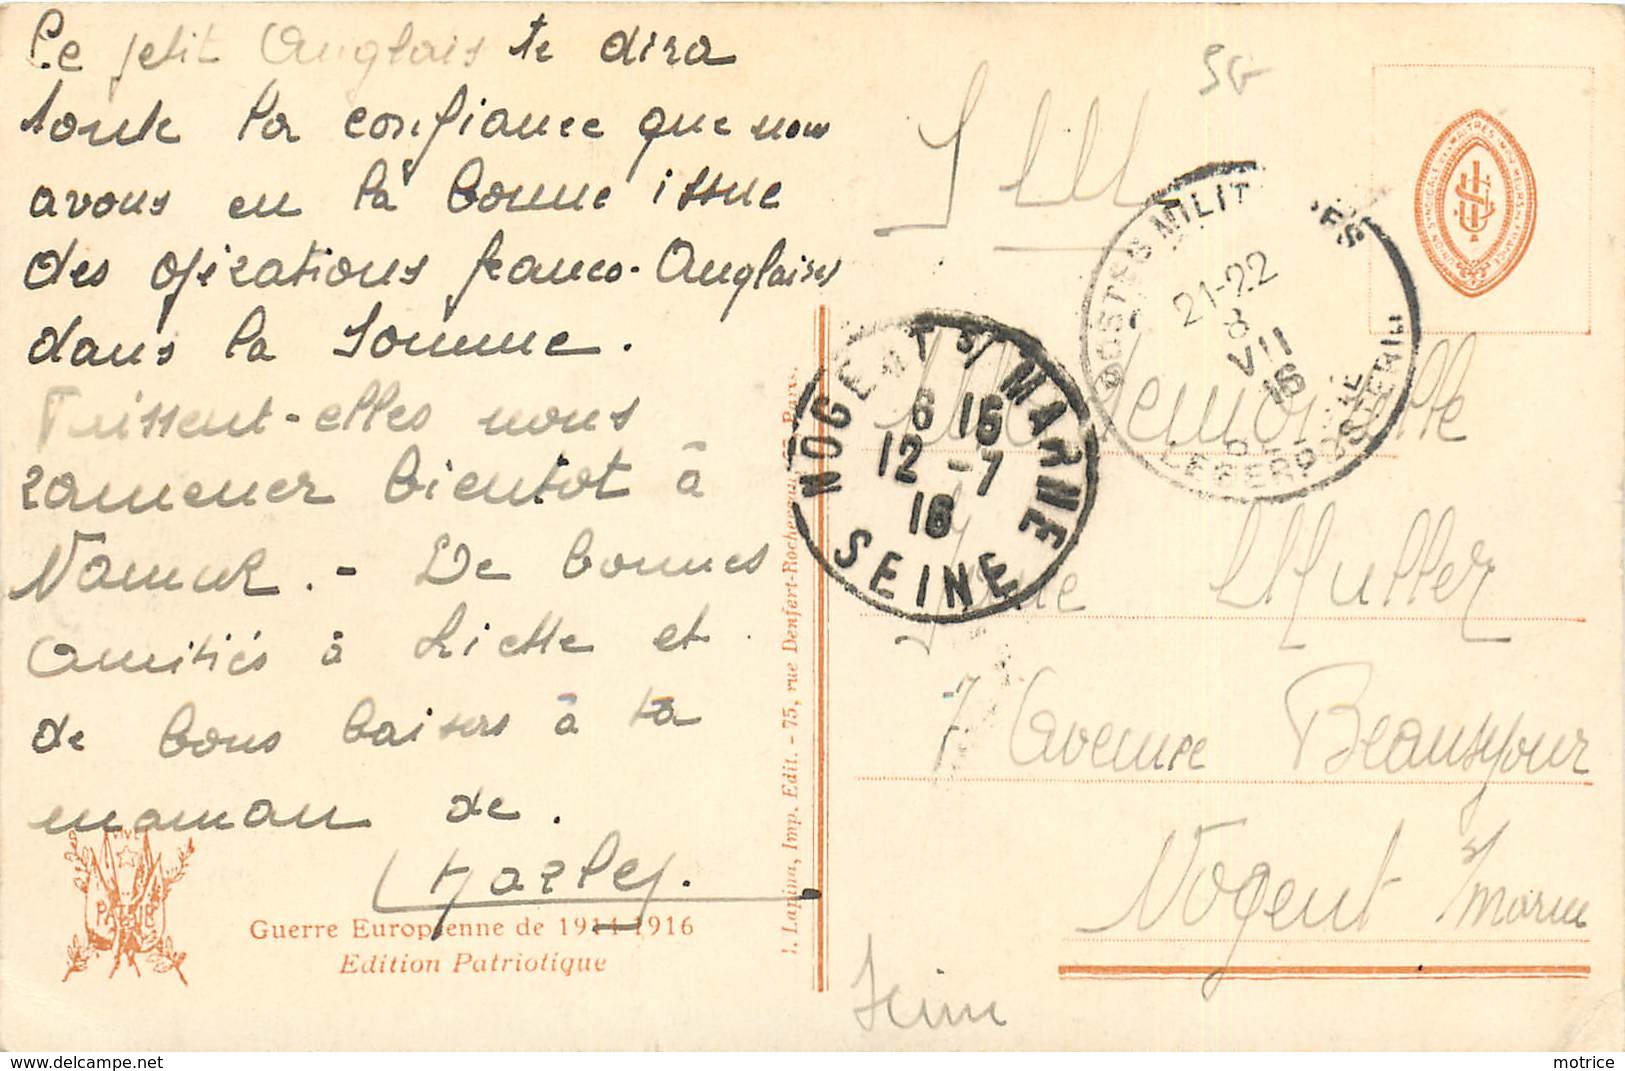 Ce petit Anglais te dira
toute la confiance que nous
avons en la bonne issue
des opérations franco-Anglaises
dans la Somme.
Puissent-elles nous
ramener bientot à
Namur. - De bonnes
amitiés à Liette et
de bons baisers à ta
maman de.
VIVE
PATRIE
Guerre Européenne de 1914-1916
Edition Patriotique
I. Lapina, Imp. Edit. - 75, rue Denfert-Rochereau, Paris.
NOGENT S/ MARNE
6 16
12 -7
16
SEINE
POSTES MILITAIRES
21-22
8
VII
16
BELGIQUE
LEGERPOSTERIJ
SG
Mademoiselle
Muller
7 Avenue Beauséjour
Nogent s/ Marne
Seine
motrice